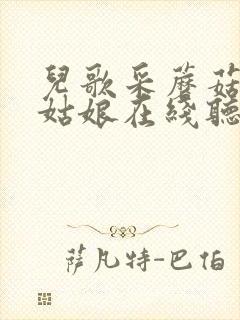 兒歌采蘑菇
姑娘在綫聽
薩凡特-巴伯